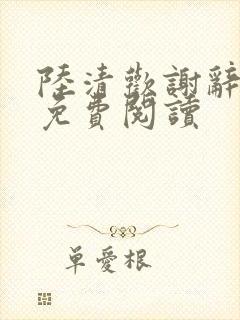 陸清歡謝辭
免費閱讀
單愛根